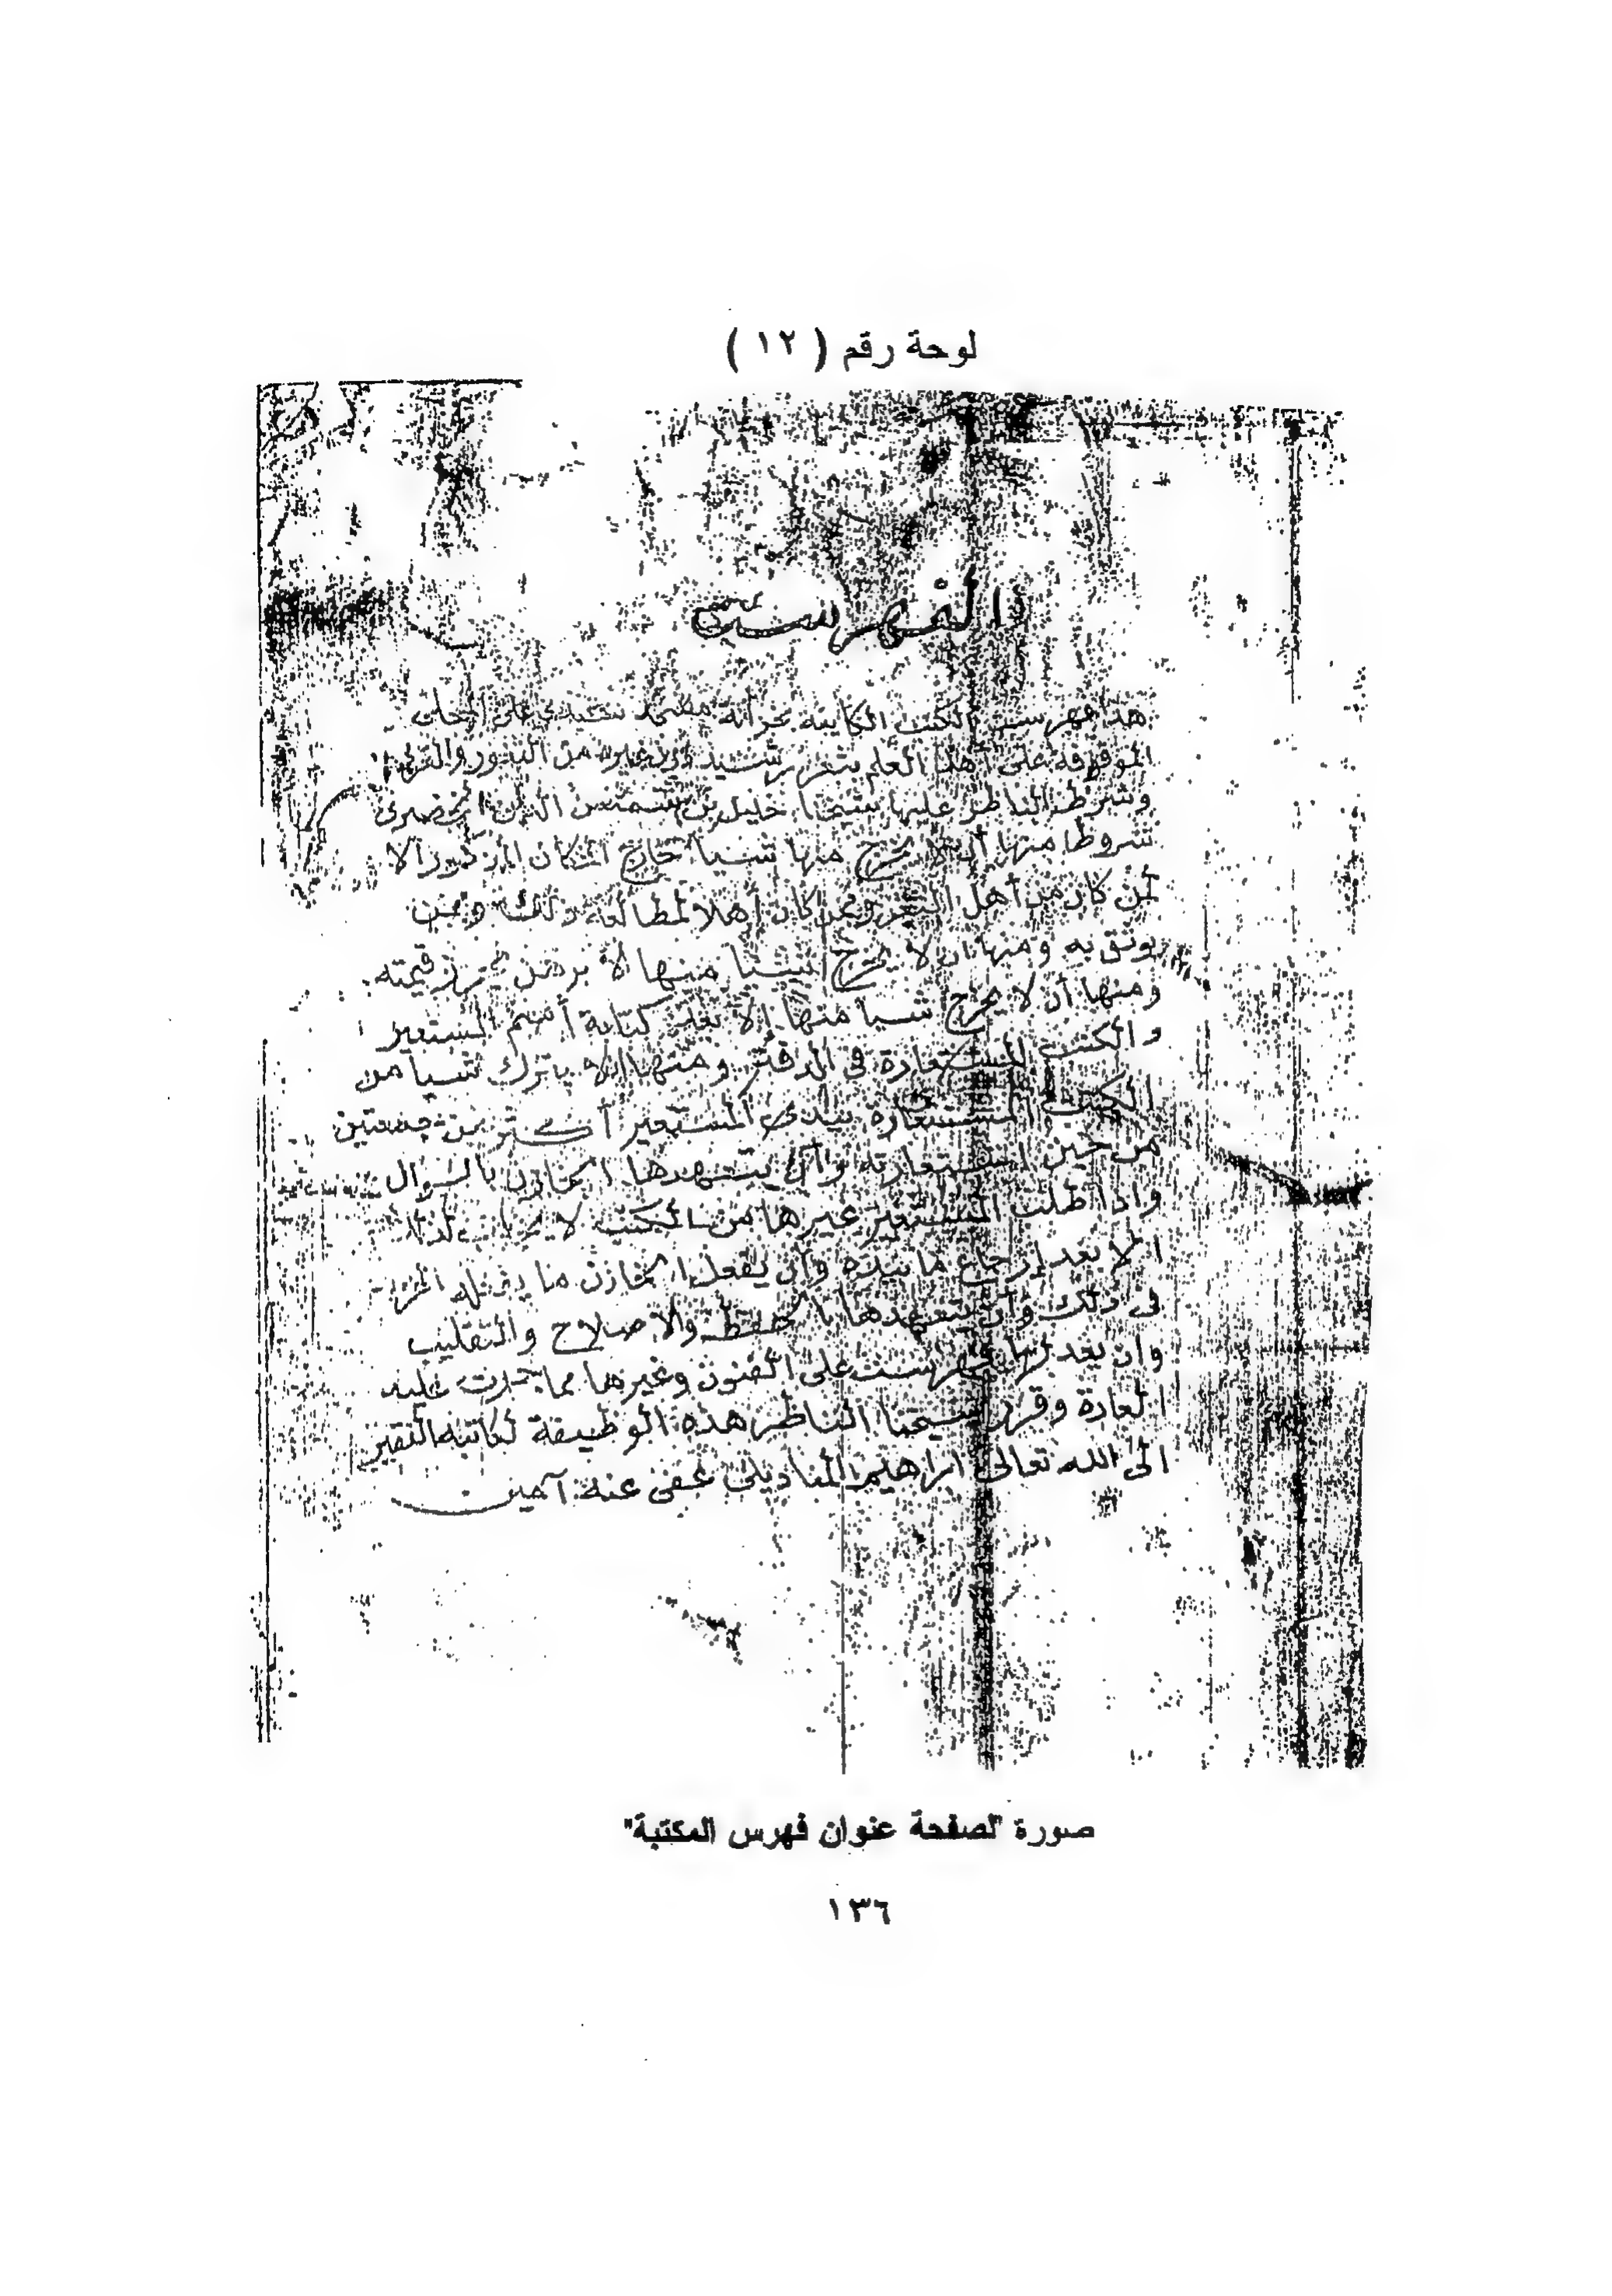 لوحة رقم ( ١٢ )
الفهرست
هذا فهرست الكتب الكاينة بخزانة مسجد سيدي على المحلى
الموقوفة على أهل العلم بثغر رشيد وغيره من الثغور والقرى
وشرط الناظر عليها شيخنا خليل بن شمس الدين الخضرى
شروطا منها أن لا يخرج منها شيا خارج المكان المذكور الا
لمن كان من أهل الثغر وممن كان أهلا لمطالعة ذلك وممن
يوثق به ومنها أن لا يخرج شيا منها الا برهن يحرز قيمته
ومنها أن لا يخرج شيا منها إلا بعد كتابة أسم المستعير
والكتب المستعارة فى الدفتر ومنها الا يترك شيا من
الكتب المستعارة بيدى المستعير أكثر من جمعتين
من حين استعارته وأن يتعهدها الخازن بالسوال
واذا طلب المستعير غيرها من الكتب لا
الا بعد إرجاع ما بيده وأن يفعل الخازن ما يفعله
فى ذلك وأن يتعهدها بالحفظ والاصلاح والتقليب
وان يعد لها فهرست على الفنون وغيرها مما جرت عليه
العادة وقرر شيخنا الناظر هذه الوظيفة لكاتبه الفقير
الى الله تعالى ابراهيم المناديلى عفى عنه آمين
صورة "لصفحة عنوان فهرس المكتبة"
١٣٦